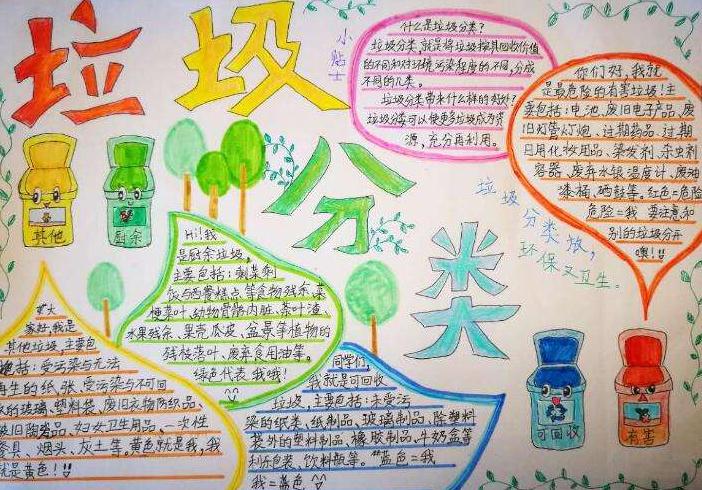 垃圾
分类
小贴士
什么是垃圾分类?
垃圾分类,就是将垃圾按其回收价值
的不同和对环境污染程度的不同,分成
不同的几类。
垃圾分类带来什么样的好处?
垃圾分类可以使更多垃圾成为资
源,充分再利用。
你们好,我就
是最危险的有害垃圾!主
要包括:电池、废旧电子产品、废
旧灯管灯炮、过期药品、过期
日用化妆用品、染发剂、杀虫剂
容器、废弃水银温度计、废油
漆桶、硒鼓等。红色=危险
危险=我 要注意和
别的垃圾分开
噢!!
其他
厨余
Hi!我
是厨余垃圾,
主要包括:剩菜剩
饭与西餐糕点等食物残余、菜
梗菜叶、动物骨骼内脏、茶叶渣、
水果残余、果壳瓜皮、盆景等植物的
残枝落叶、废弃食用油等。
绿色代表我哦!
垃圾分类放,
环保又卫生。
扩大
家好,我是
其他垃圾,主要包
括:受污染与无法
再生的纸张、受污染与不可回
的玻璃、塑料袋、废旧衣物防织品、
废旧陶瓷品、妇女卫生用品、一次性
餐具、烟头、灰土等。黄色就是我,我
就是黄色!!!
同学们,
我就是可回收
垃圾,主要包括:未受污
染的纸类、纸制品、玻璃制品、除塑料
袋外的塑料制品、橡胶制品、牛奶盒等
利乐包装、饮料瓶等。蓝色=我
我=蓝色
可回收
有害